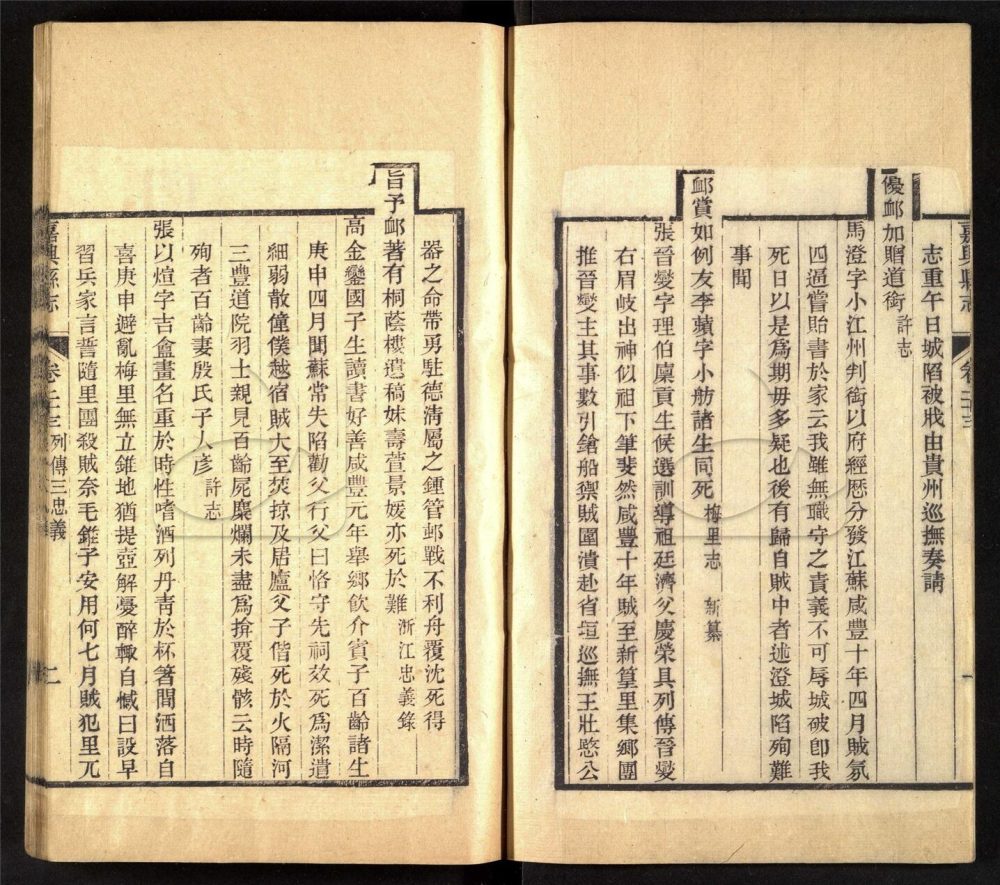 嘉興縣志
卷二十三
志重午日城陷被戕由貴州巡撫奏請
優卹加贈道銜許志
馬澄字小江州判銜以府經歷分發江蘇咸豐十年四月賊氛
四逼嘗貽書於家云我雖無職守之責義不可辱城破卽我
死日以是爲期毋多疑也後有歸自賊中者述澄城陷殉難
事聞
卹賞如例友李蘋字小舫諸生同死梅里志 新纂
張晉燮字理伯廩貢生候選訓導祖廷濟父慶榮具列傳晉燮
右眉岐出神似祖下筆斐然咸豐十年賊至新篁里集鄉團
推晉燮主其事數引鎗船禦賊團潰赴省垣巡撫王壯愍公
器之命帶勇駐德淸屬之鍾管郵戰不利舟覆沈死得
旨予卹著有桐蔭樓遺稿妹壽萱景媛亦死於難浙江忠義錄
高金鑾國子生讀書好善咸豐元年舉鄉飮介賓子百齡諸生
庚申四月聞蘇常失陷勸父行父曰恪守先祠效死爲潔遺
細弱散僮僕越宿賊大至焚掠及居廬父子偕死於火隔河
三豐道院羽士親見百齡屍麋爛未盡爲揜覆殘骸云時隨
殉者百齡妻殷氏子人彥許志
張以煊字吉盦畫名重於時性嗜酒列丹靑於杯箸間洒落自
喜庚申避亂梅里無立錐地猶提壺解憂醉輒自慽曰設早
習兵家言誓隨里團殺賊奈毛錐子安用何七月賊犯里兀
嘉興縣志
卷二十三 列傳三忠義